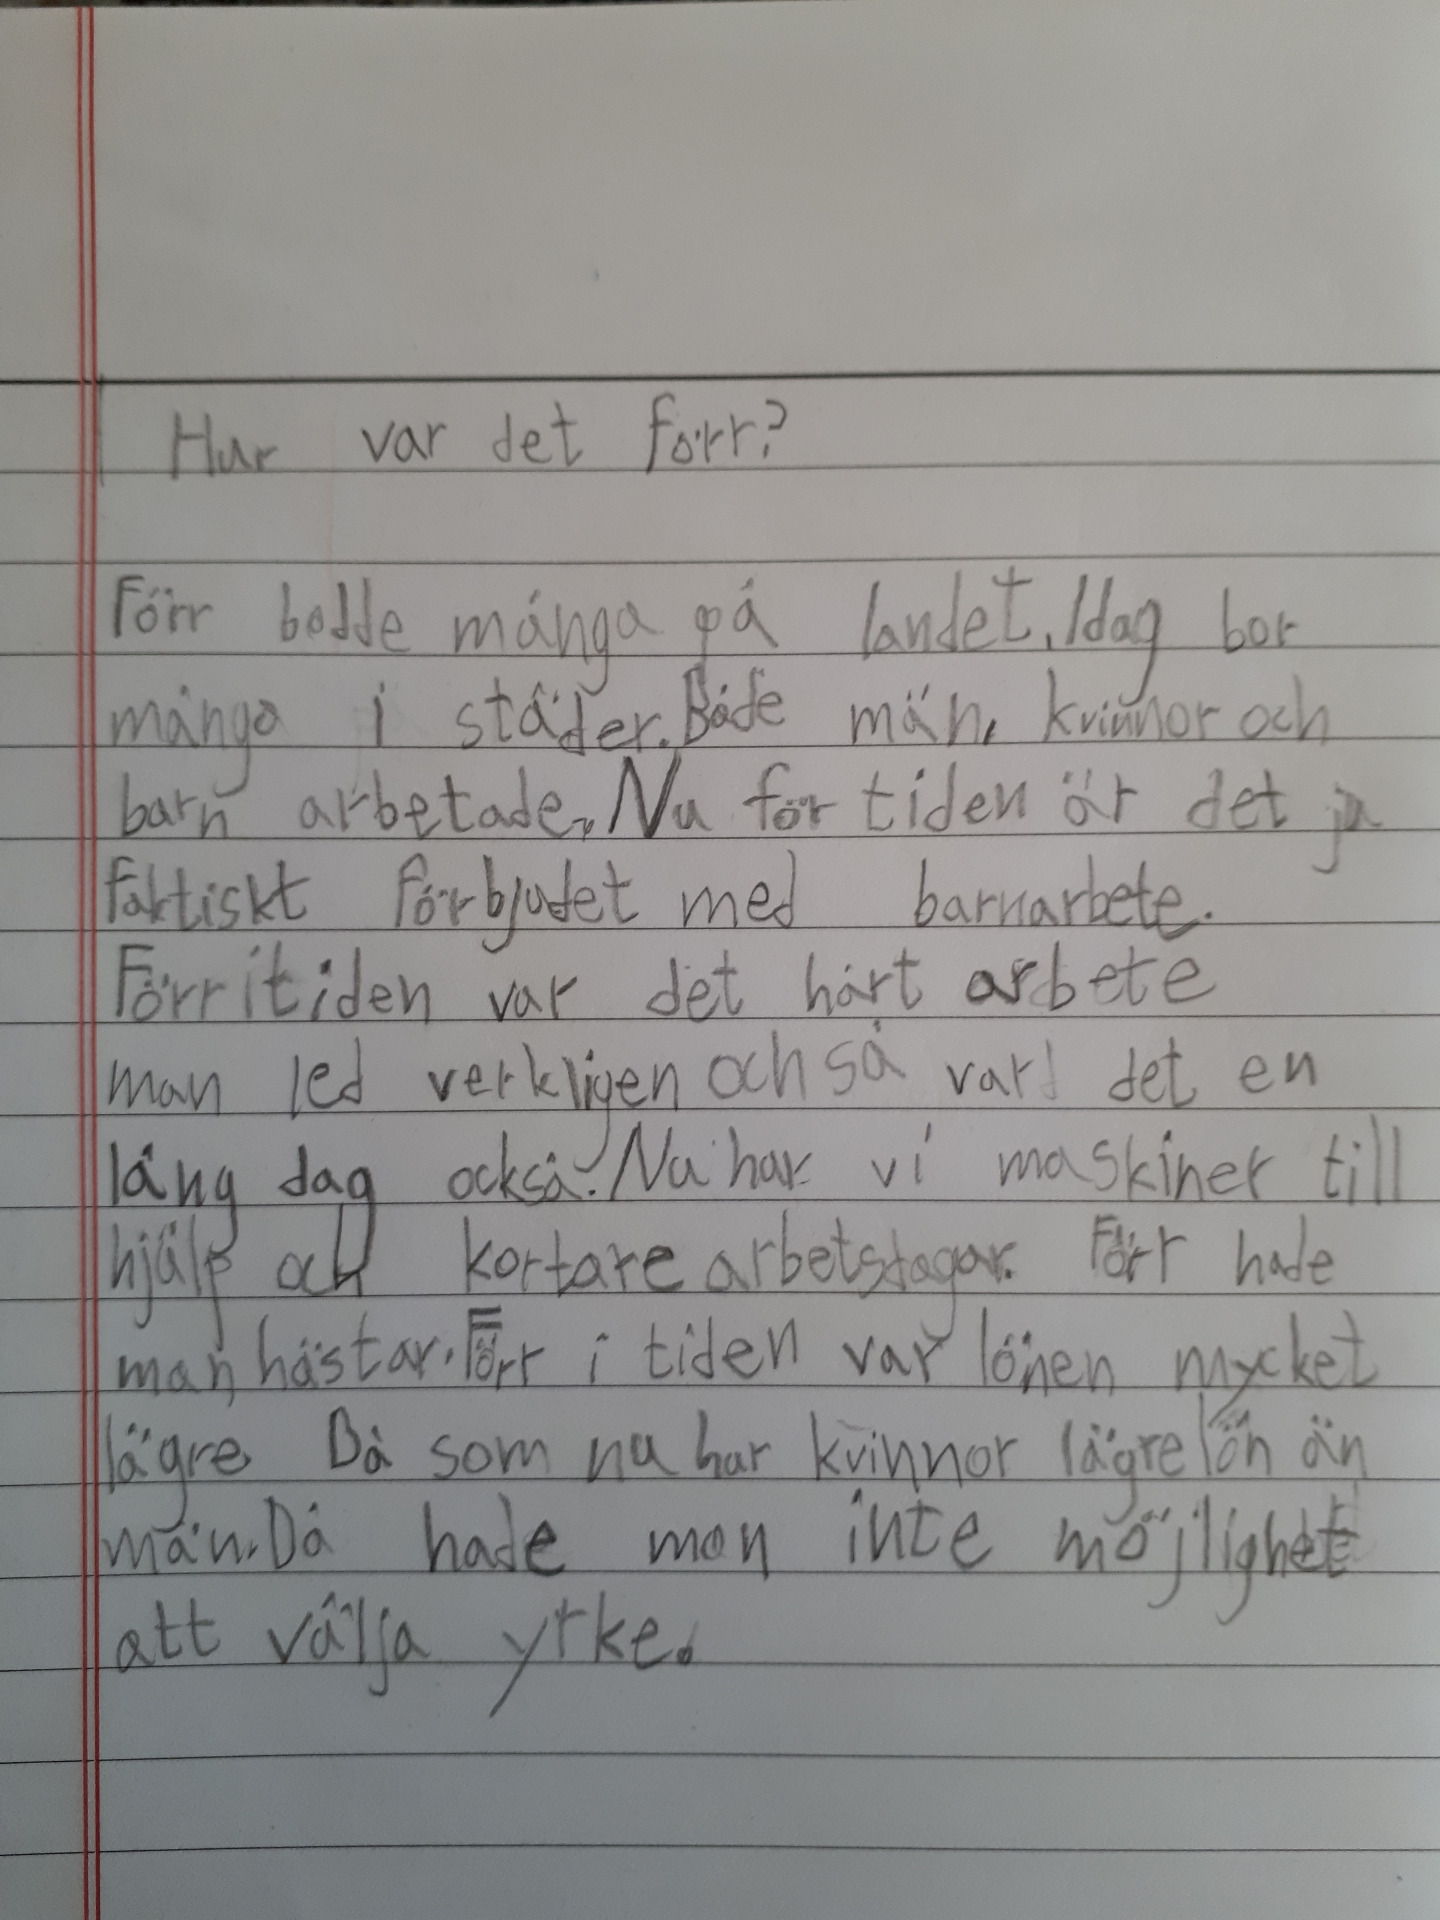 Hur var det förr?
Förr bodde många på landet. Idag bor
många i städer. Både män, kvinnor och
barn arbetade. Nu för tiden är det ju
faktiskt förbjudet med barnarbete.
Förr i tiden var det hårt arbete
man led verkligen och så var det en
lång dag också. Nu har vi maskiner till
hjälp och kortare arbetsdagar. Förr hade
man hästar. Förr i tiden var lönen mycket
lägre Då som nu har kvinnor lägre lön än
män. Då hade man inte möjlighet
att välja yrke.